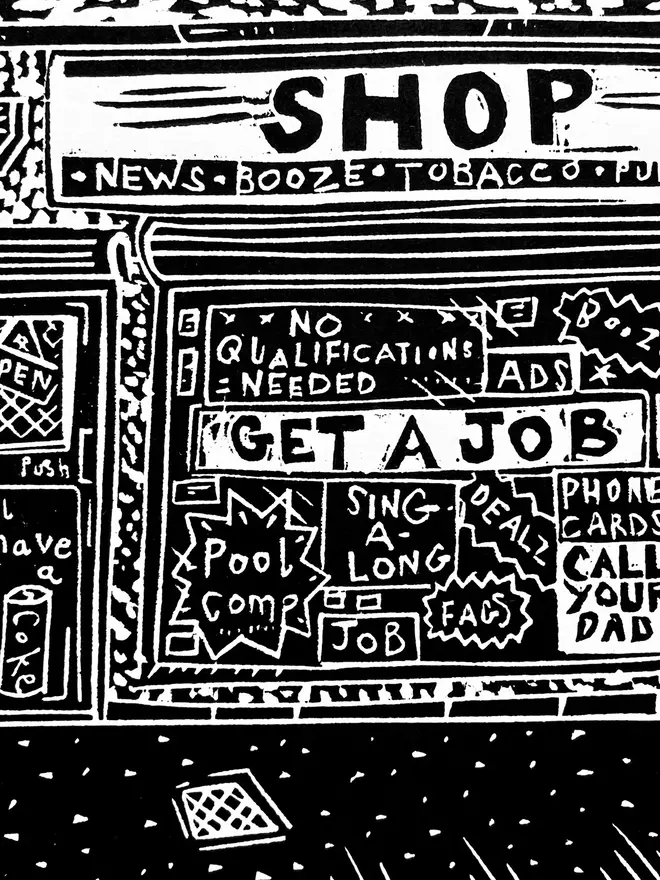 SHOP
• NEWS • BOOZE • TOBACCO • PU
NO
QUALIFICATIONS
NEEDED
ADS
BOOZ
GET A JOB
PEN
Push
have
a
Coke
Pool
comp
SING-
A-
LONG
DEALZ
FAGS
JOB
PHONE
CARDS
CALL
YOUR
DAD